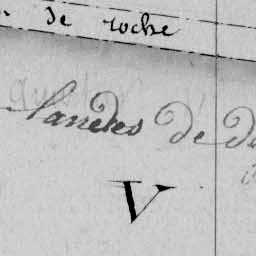 de roche
Landes de
V